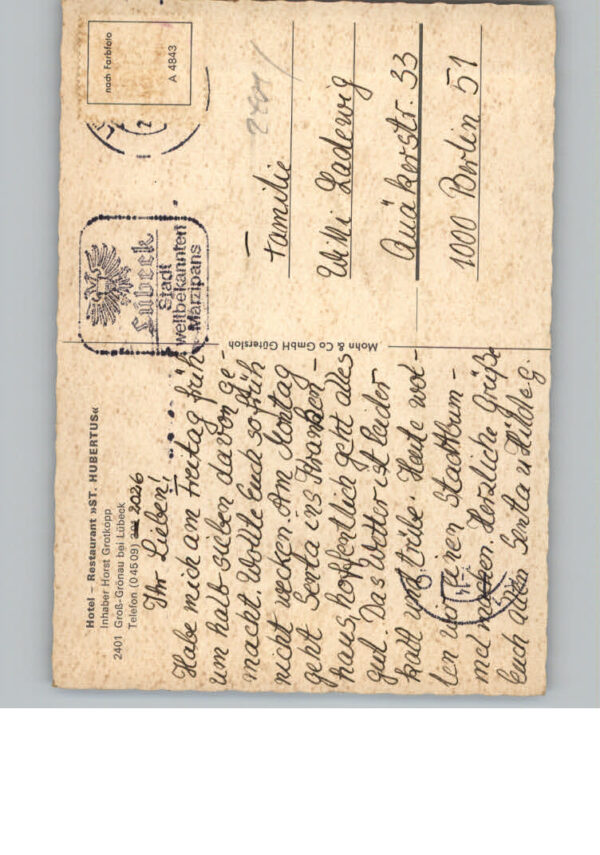 Hotel – Restaurant »ST. HUBERTUS«
Inhaber Horst Grotkopp
2401 Groß-Grönau bei Lübeck
Telefon (0 45 09) 2026
Ihr Lieben!
Habe mich am Freitag früh
um halb sieben davon ge-
macht. Wollte Euch so früh
nicht wecken. Am Montag
geht Senta ins Kranken-
haus, hoffentlich geht alles
gut. Das Wetter ist leider
kalt und trübe. Heute wol-
len wir einen Stadtbum-
mel machen. Herzliche Grüße
Euch allen Senta u Hilde G.
Mohn & Co GmbH Gütersloh
Lübeck
Stadt
weltbekannten
Marzipans
nach Farbfoto
A 4843
Familie
Willi Ladewig
Quäkerstr. 33
1000 Berlin 51